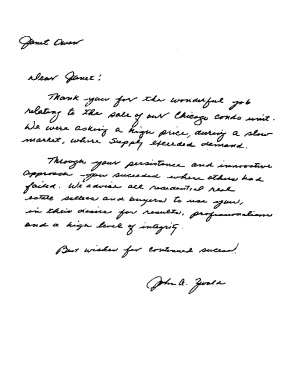 Janet Owen
Dear Janet:
Thank you for the wonderful job
relating to the sale of our Chicago condo unit.
We were asking a high price, during a slow
market, where supply exceeded demand.
Through your persistence and innovative
approach you succeeded where others had
failed. We advise all residential real
estate sellers and buyers to use you,
in their desire for results, professionalism
and a high level of integrity.
Best wishes for continued success!
John A.